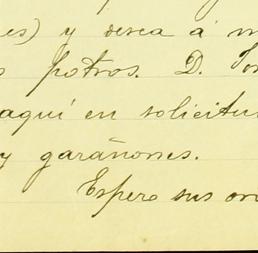 es) y desea á m
potros. D. 
aquí en solicitu
y garañones.
Espero sus or